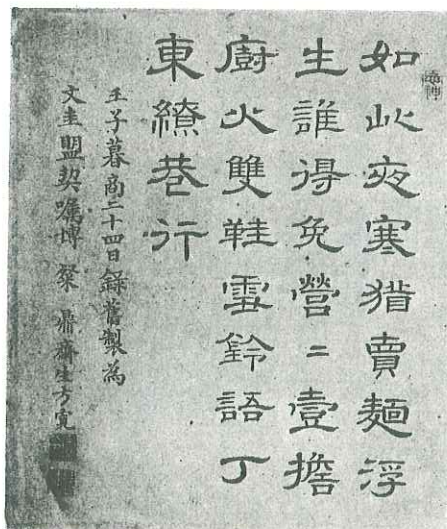 如此夜寒猶賣麵浮
生誰得免營二壹擔
廚火雙鞋雪鈴語丁
東繚巷行
壬子暮商二十四日錄舊製為
文圭盟契囑博粲 鼎齋生方寬